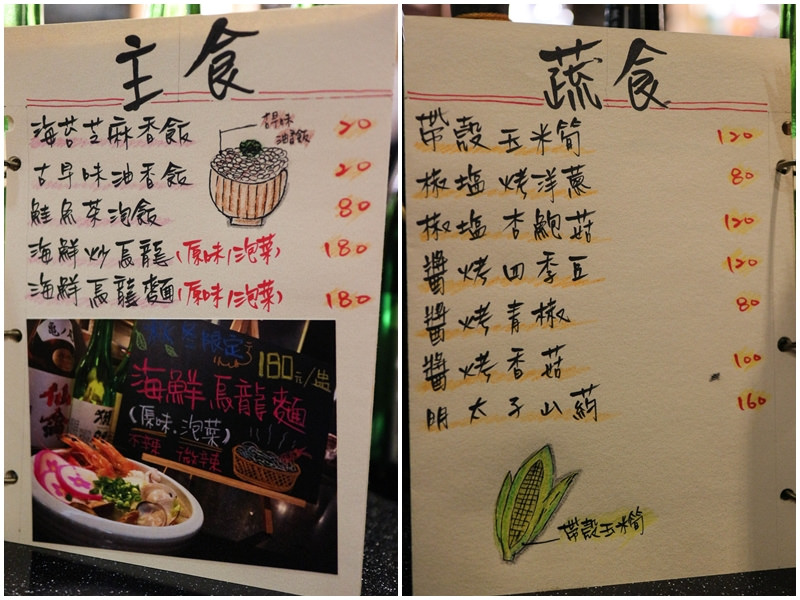 主食
海苔芝麻香飯 20
古早味油香飯 20
鮭魚茶泡飯 80
海鮮炒烏龍(原味/泡菜) 180
海鮮烏龍麵(原味/泡菜) 180
古早味
油香飯
限定
180元/盅
海鮮烏龍麵
(原味.泡菜)
不辣 微辣
蔬食
帶殼玉米筍 120
椒塩烤洋蔥 80
椒塩杏鮑菇 120
醬烤四季豆 120
醬烤青椒 80
醬烤香菇 100
明太子山药 160
帶殼玉米筍